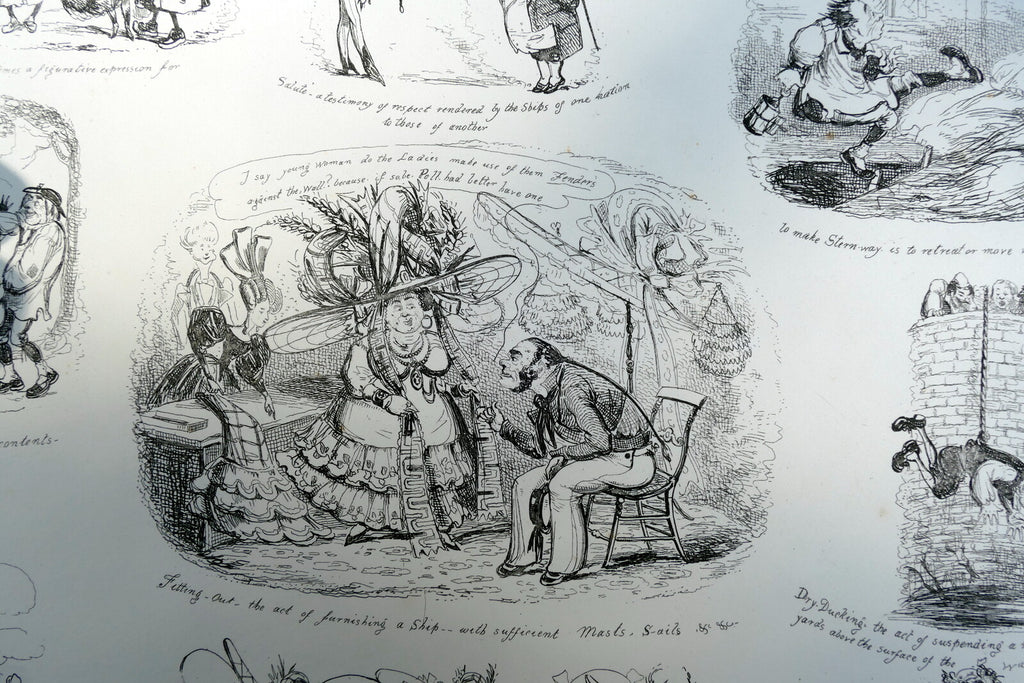 mes a figurative expression for
Salute - a testimony of respect rendered by the Ships of one Nation
to those of another
I say young Woman do the Ladies make use of them Fenders
against the Wall? because if so le. Poll had better have one
to make Stern-way is to retreat or move
contents-
Fitting-Out - the act of furnishing a Ship -- with sufficient Masts, S-ails
Dry Ducking. the act of suspending a
yards above the surface of the